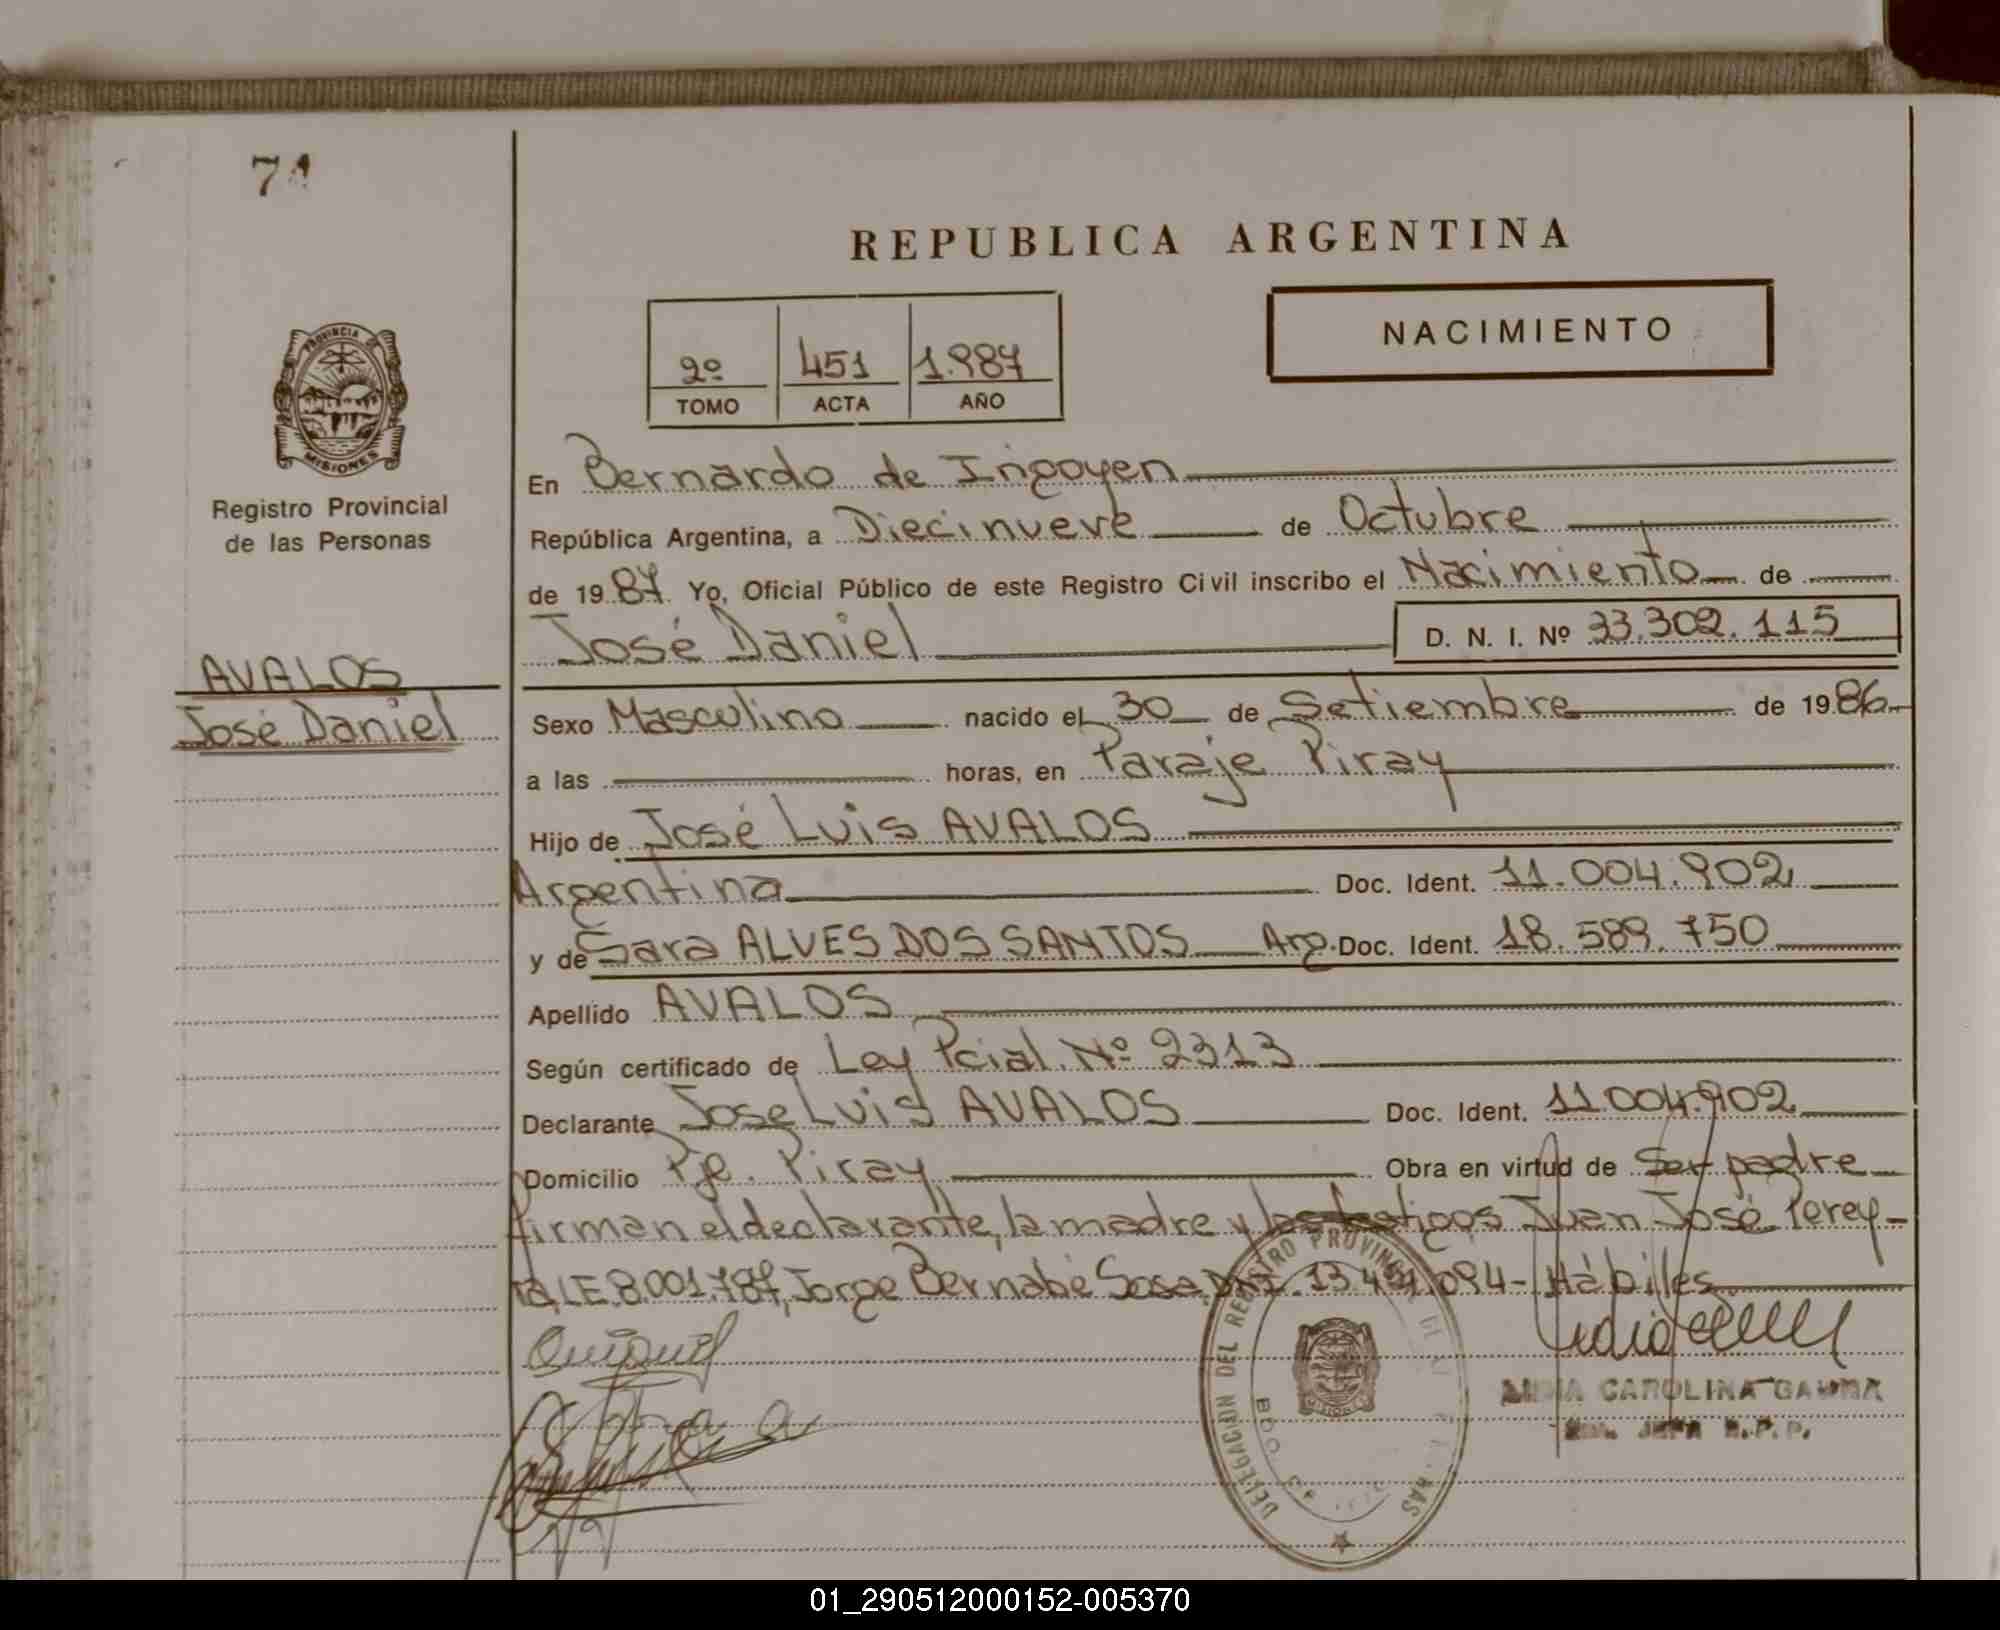 74
REPUBLICA ARGENTINA
NACIMIENTO
2º 451 1.987
TOMO ACTA AÑO
PROVINCIA DE
MISIONES
Registro Provincial
de las Personas
AVALOS
José Daniel
En Bernardo de Irigoyen
República Argentina, a Diecinueve de Octubre
de 1987 Yo, Oficial Público de este Registro Civil inscribo el Nacimiento de
José Daniel D. N. I. Nº 33.302.115
Sexo Masculino nacido el 30 de Setiembre de 1986
a las horas, en Paraje Piray
Hijo de José Luis AVALOS
Argentina Doc. Ident. 11.004.902
y de Sara ALVES DOS SANTOS Arg. Doc. Ident. 18.589.750
Apellido AVALOS
Según certificado de Ley Pcial. Nº 2313
Declarante Jose Luis AVALOS Doc. Ident. 11.004.902
Domicilio Pje. Piray Obra en virtud de Ser padre
firman el declarante, la madre y los testigos Juan José Perey-
ra, LE. 8.001.787, Jorge Bernabé Sosa, DNI. 13.4 .094 - Hábiles
DELEGACION DEL REGISTRO PROVINCIAL DE LAS
MISIONES
CAROLINA
JEFA R.P.P.
01_290512000152-005370